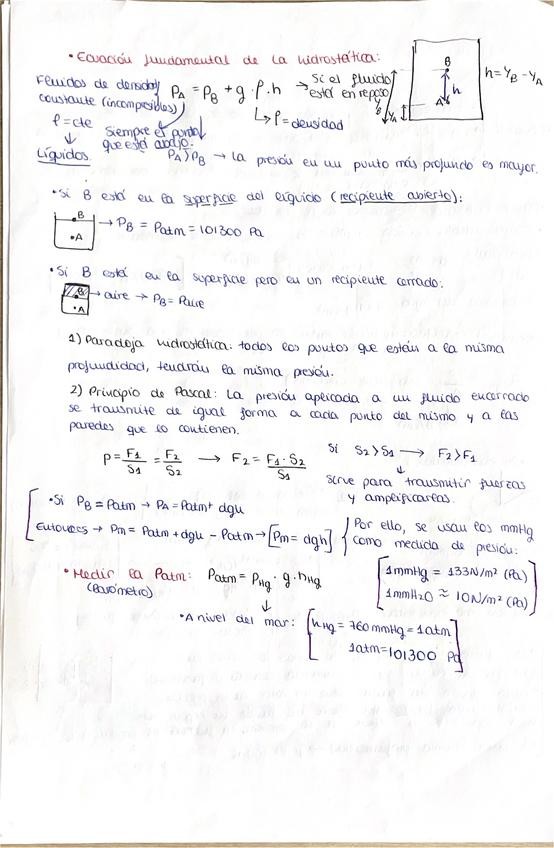 • Ecuación fundamental de la hidrostática:
Fluidos de densidad constante (incompresibles) } P_A = P_B + g · ρ · h → Si el fluido está en reposo
B
h
A
Y_B
Y_A
h = Y_B - Y_A
ρ = cte
↳ ρ = densidad
↓
Siempre el punto que está abajo.
Líquidos
P_A > P_B → La presión en un punto más profundo es mayor.
• Si B está en la superficie del líquido (recipiente abierto):
• B
• A
→ P_B = Patm = 101300 Pa
• Si B está en la superficie pero en un recipiente cerrado:
B
• A
→ aire → P_B = Paire
1) Paradoja hidrostática: todos los puntos que están a la misma
profundidad, tendrán la misma presión.
2) Principio de Pascal: La presión aplicada a un fluido encerrado
se transmite de igual forma a cada punto del mismo y a las
paredes que lo contienen.
P = F₁/S₁ = F₂/S₂ → F₂ = F₁ · S₂/S₁
Si S₂ > S₁ → F₂ > F₁
↓
sirve para transmitir fuerzas
y amplificarlas.
• Si P_B = Patm → P_A = Patm + dgh
Entonces → Pm = Patm + dgh - Patm → [Pm = dgh]
Por ello, se usan los mmHg
como medida de presión:
• Medir la Patm: Patm = ρ_Hg · g · h_Hg
(Barómetro)
1 mmHg = 133 N/m² (Pa)
1 mmH₂O ≈ 10 N/m² (Pa)
↓
• A nivel del mar:
h_Hg = 760 mmHg = 1 atm
1 atm = 101300 Pa